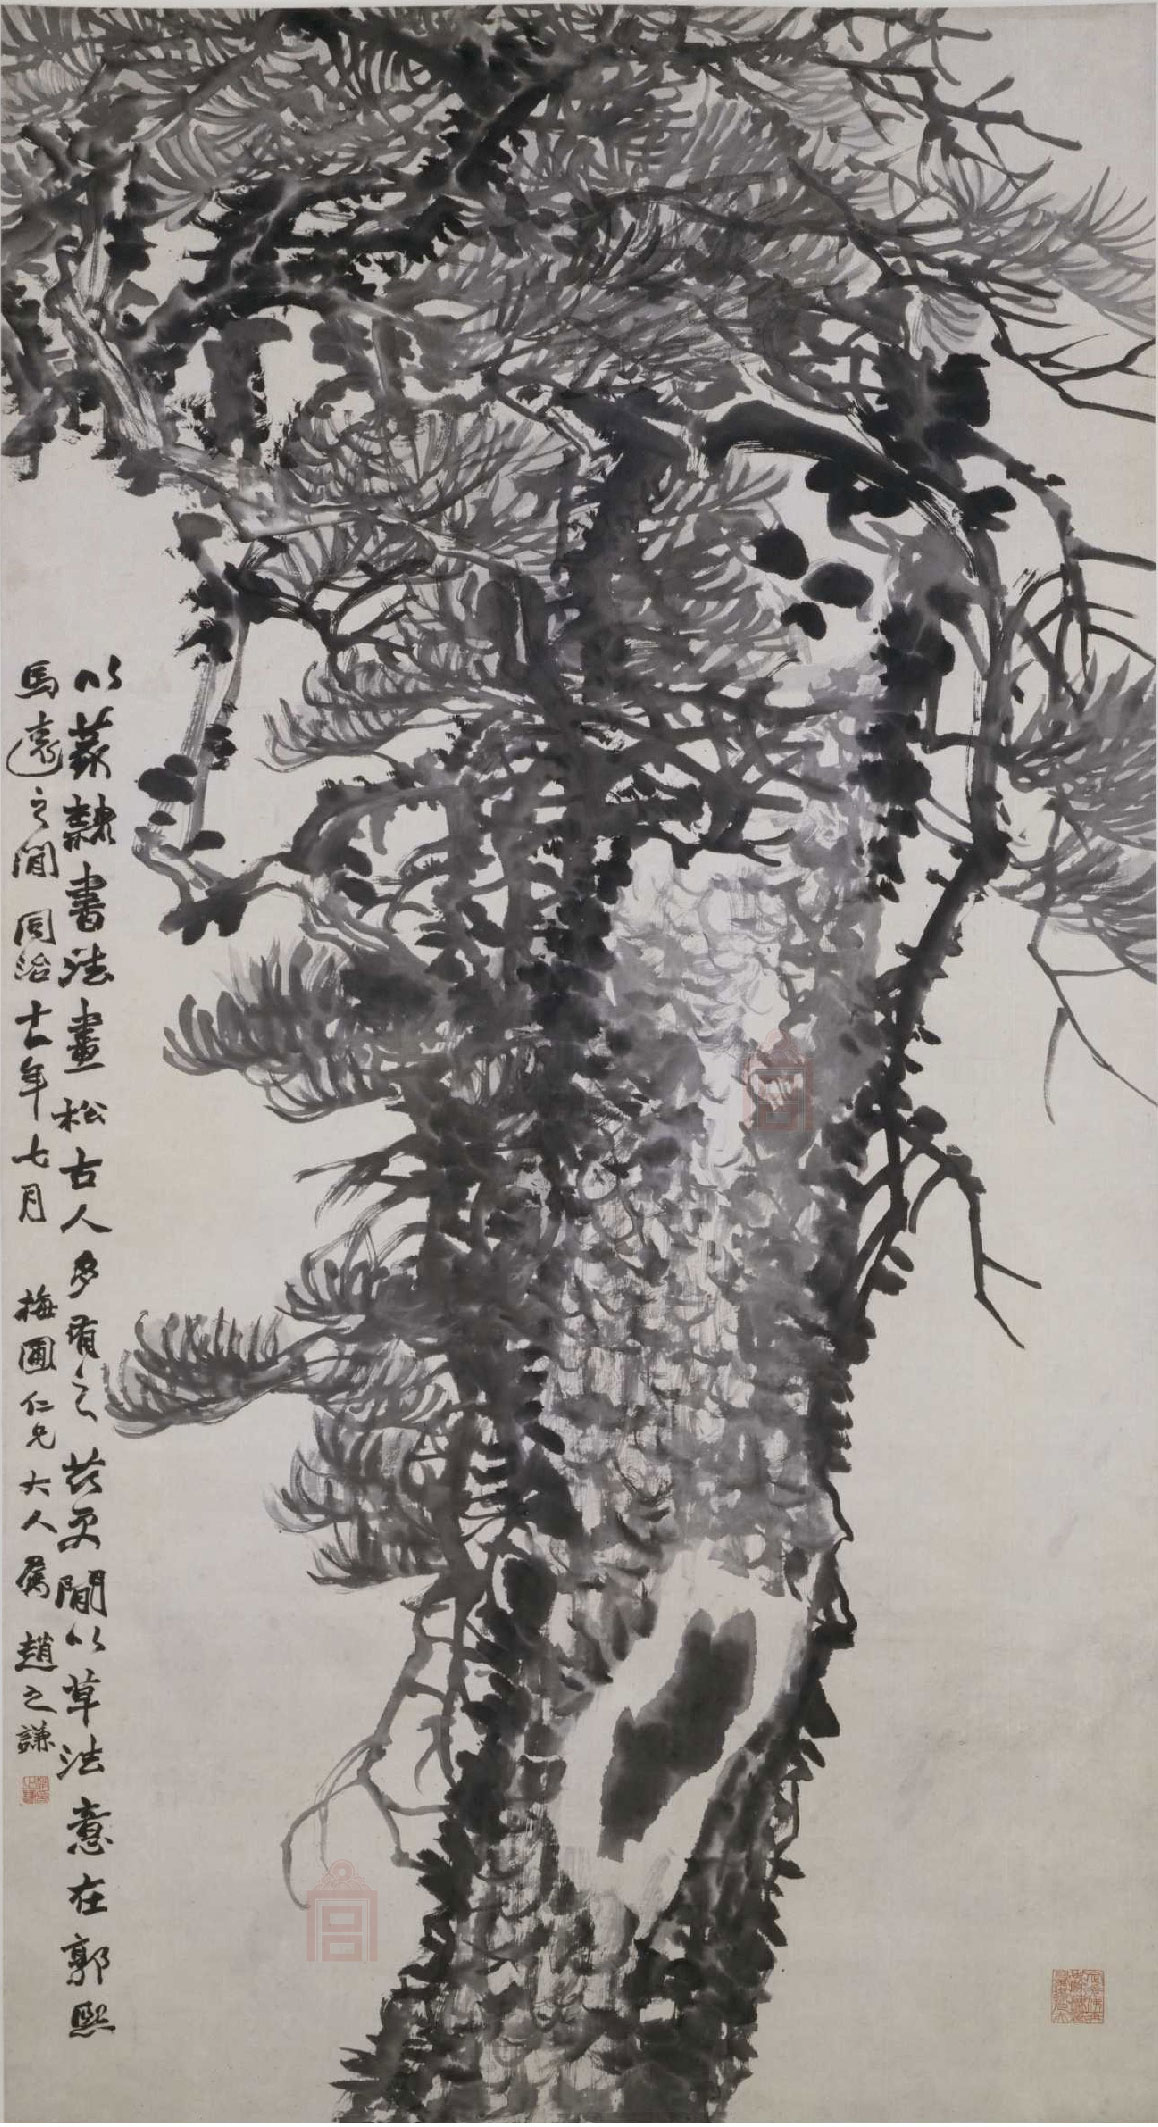 以篆隸書法畫松古人多有之茲更間以草法意在郭熙
馬遠之間 同治十一年七月 梅圃仁兄大人屬 趙之謙